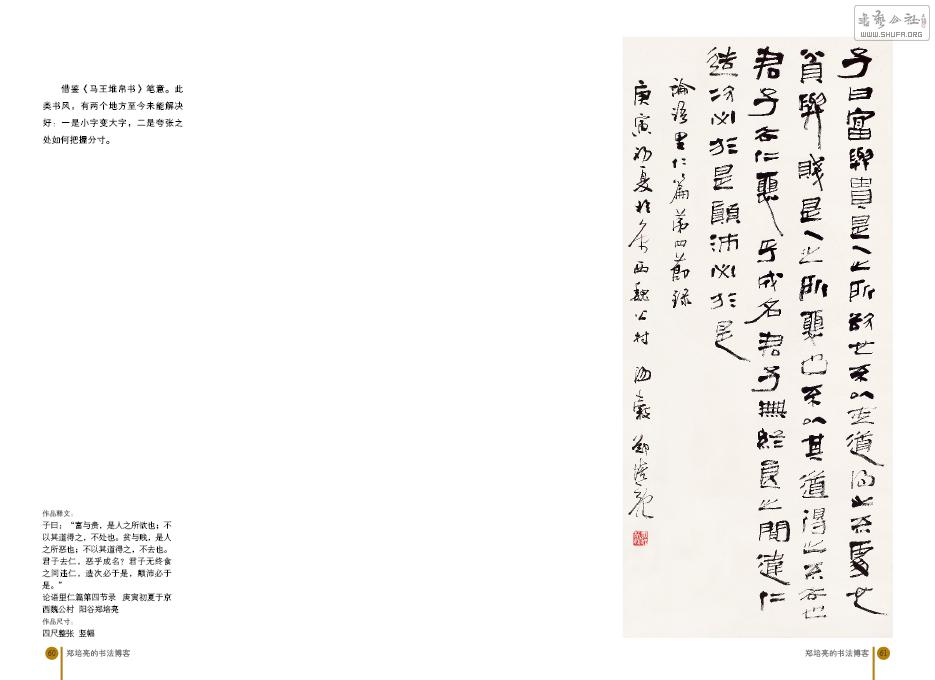 書藝公社
WWW.SHUFA.ORG
借鉴《马王堆帛书》笔意。此
类书风，有两个地方至今未能解决
好：一是小字变大字，二是夸张之
处如何把握分寸。
作品释文：
子曰：“富与贵，是人之所欲也；不
以其道得之，不处也。贫与贱，是人
之所恶也；不以其道得之，不去也。
君子去仁，恶乎成名？君子无终食
之间违仁，造次必于是，颠沛必于
是。”
论语里仁篇第四节录 庚寅初夏于京
西魏公村 阳谷郑培亮
作品尺寸：
四尺整张 竖幅
60 郑培亮的书法博客
子曰富與貴是人之所欲也不以其道得之不處也
貧與賤是人之所惡也不以其道得之不去也
君子去仁惡乎成名君子無終食之間違仁
造次必於是顛沛必於是
論語里仁篇第四節錄
庚寅初夏於京西魏公村 陽穀鄭培亮
郑培亮的书法博客 61